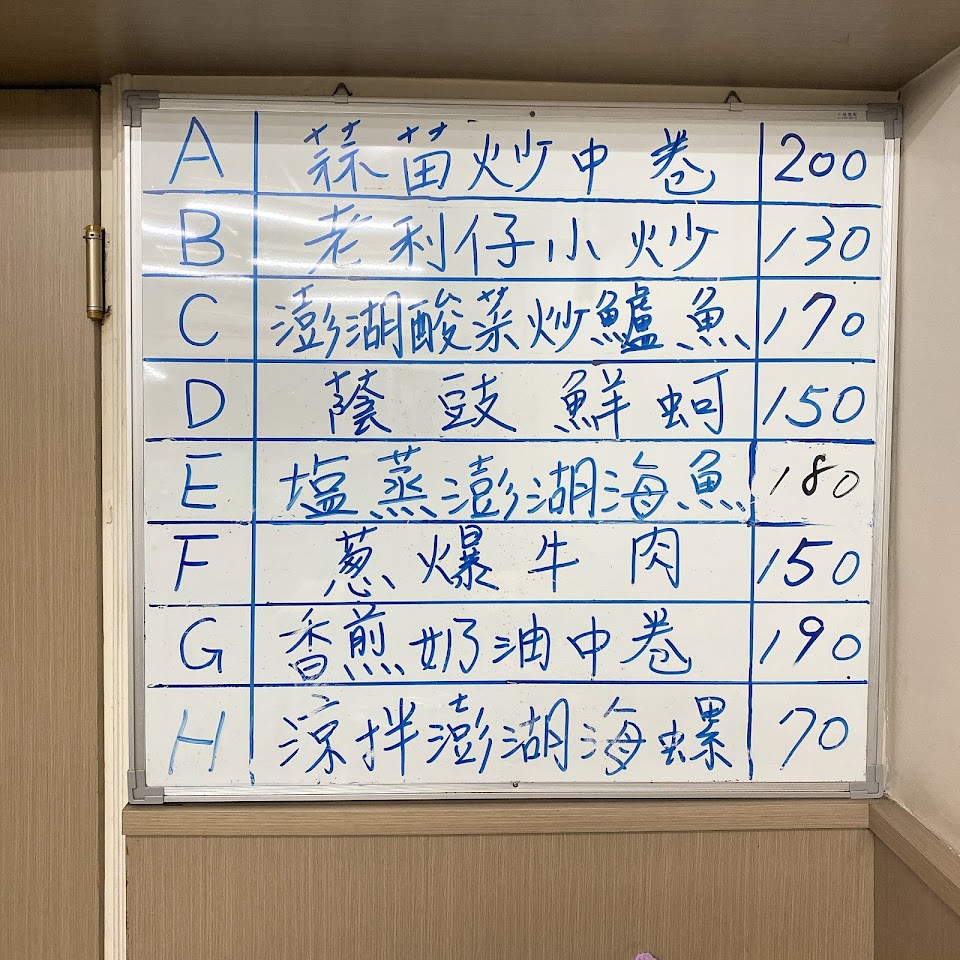 A 蒜苗炒中卷 200
B 老利仔小炒 130
C 澎湖酸菜炒鱸魚 170
D 蔭豉鮮蚵 150
E 塩蒸澎湖海魚 180
F 蔥爆牛肉 150
G 香煎奶油中卷 190
H 涼拌澎湖海螺 70